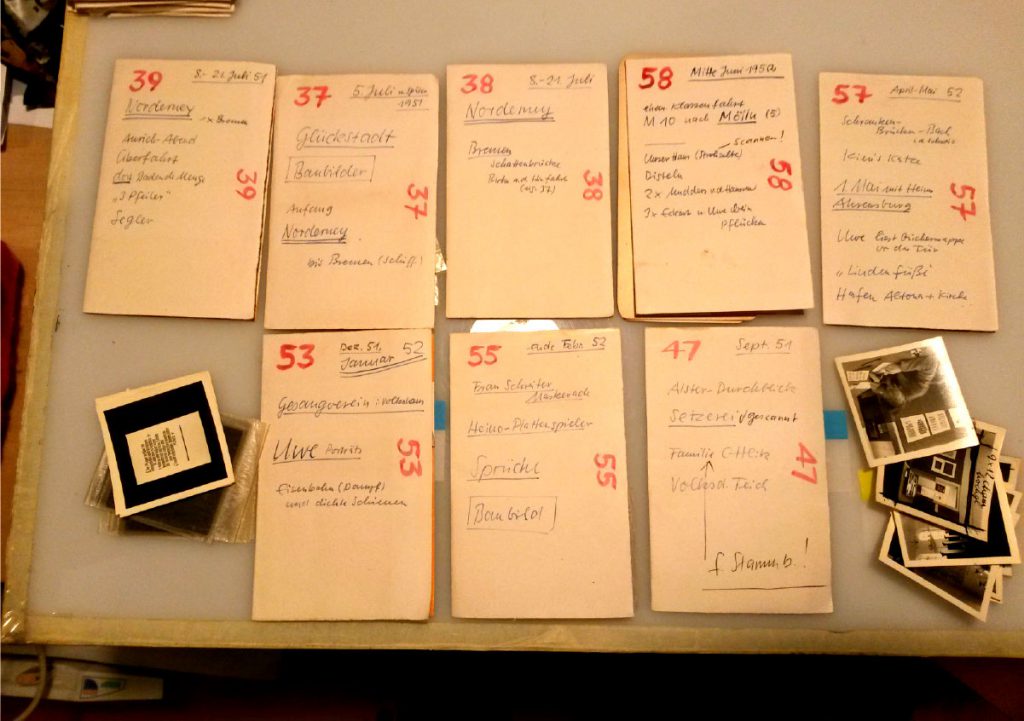 39 8.-21. Juli 51
Norderney
1x Bremen
Aurich-Abend
Überfahrt
"3 Pfeiler"
Segler
39
37 5. Juli u. später
1951
Glückstadt
Baubilder
Anfang
Norderney
bis Bremen (Schiff!
37
38 8.-21. Juli
Norderney
Bremen
Schattenbrücke
(vg. 37)
38
58 Mitte Juni 1952
Klassenfahrt
M 10 nach Mölln (5)
scannen!
Unser Haus
Disteln
2x
3x u. Uwe beim
Pflücken
58
57 April-Mai 52
Schranken-
Brücken-Bach
Kien's Kate
1. Mai mit Heim
Ahrensburg
Uwe liest Büchermappe
vor der Tür
"Lindenfüße"
Hafen Altona + Kirche
57
53 Dez. 51,
Januar 52
Gesangverein: Volksheim
Uwe Porträts
Eisenbahn (Dampf)
und dichte Schienen
53
55 Ende Febr. 52
Frau Schröter
Heino-Plattenspieler
Sprüche
Baubild
55
47 Sept. 51
Alster-Durchblick
Setzerei gescannt
Familie
Volksd. Teich
f. Stammb.!
47